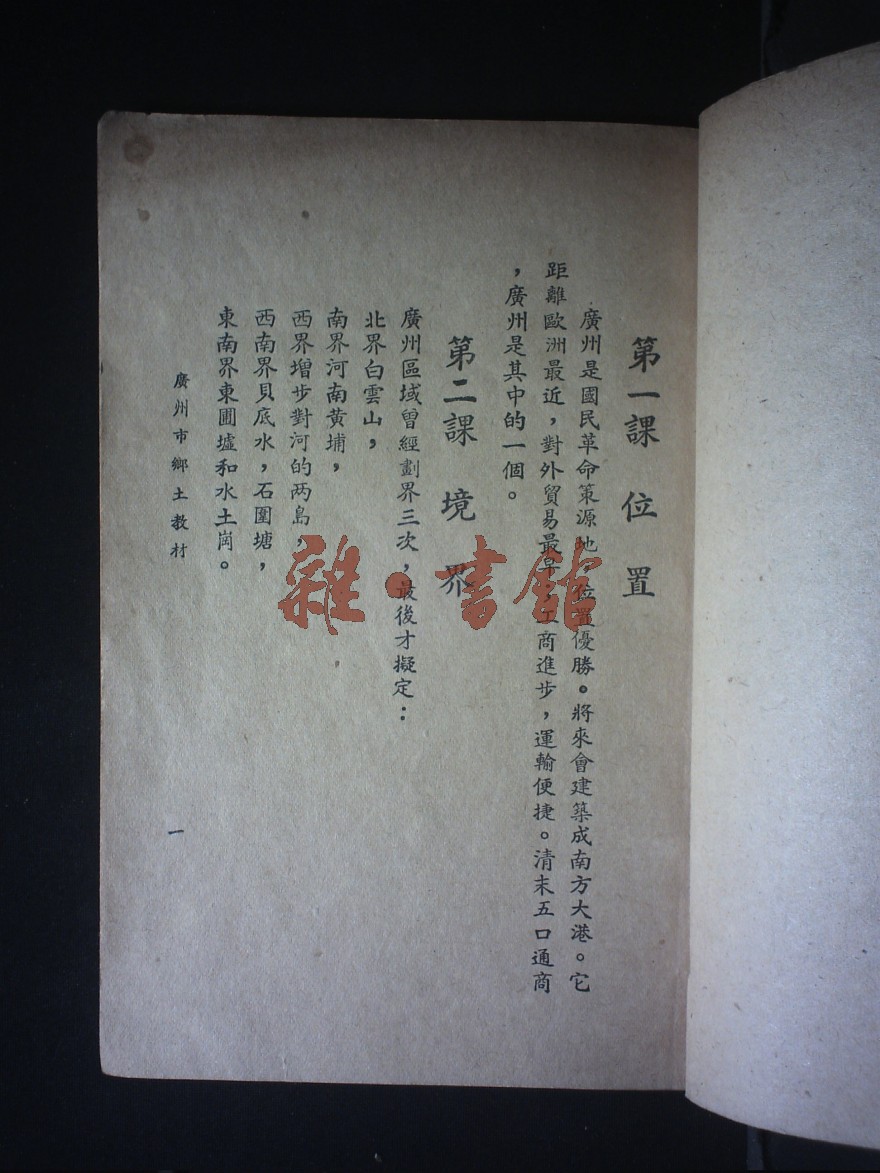 第一課 位置
廣州是國民革命策源地，位置優勝。將來會建築成南方大港。它
距離歐洲最近，對外貿易最早，工商進步，運輸便捷。清末五口通商
，廣州是其中的一個。
第二課 境界
廣州區域曾經劃界三次，最後才擬定：
北界白雲山，
南界河南黄埔，
西界增步對河的两島，
西南界貝底水，石圍塘，
東南界東圃墟和水土崗。
廣州市鄉土教材
一
雜·書館